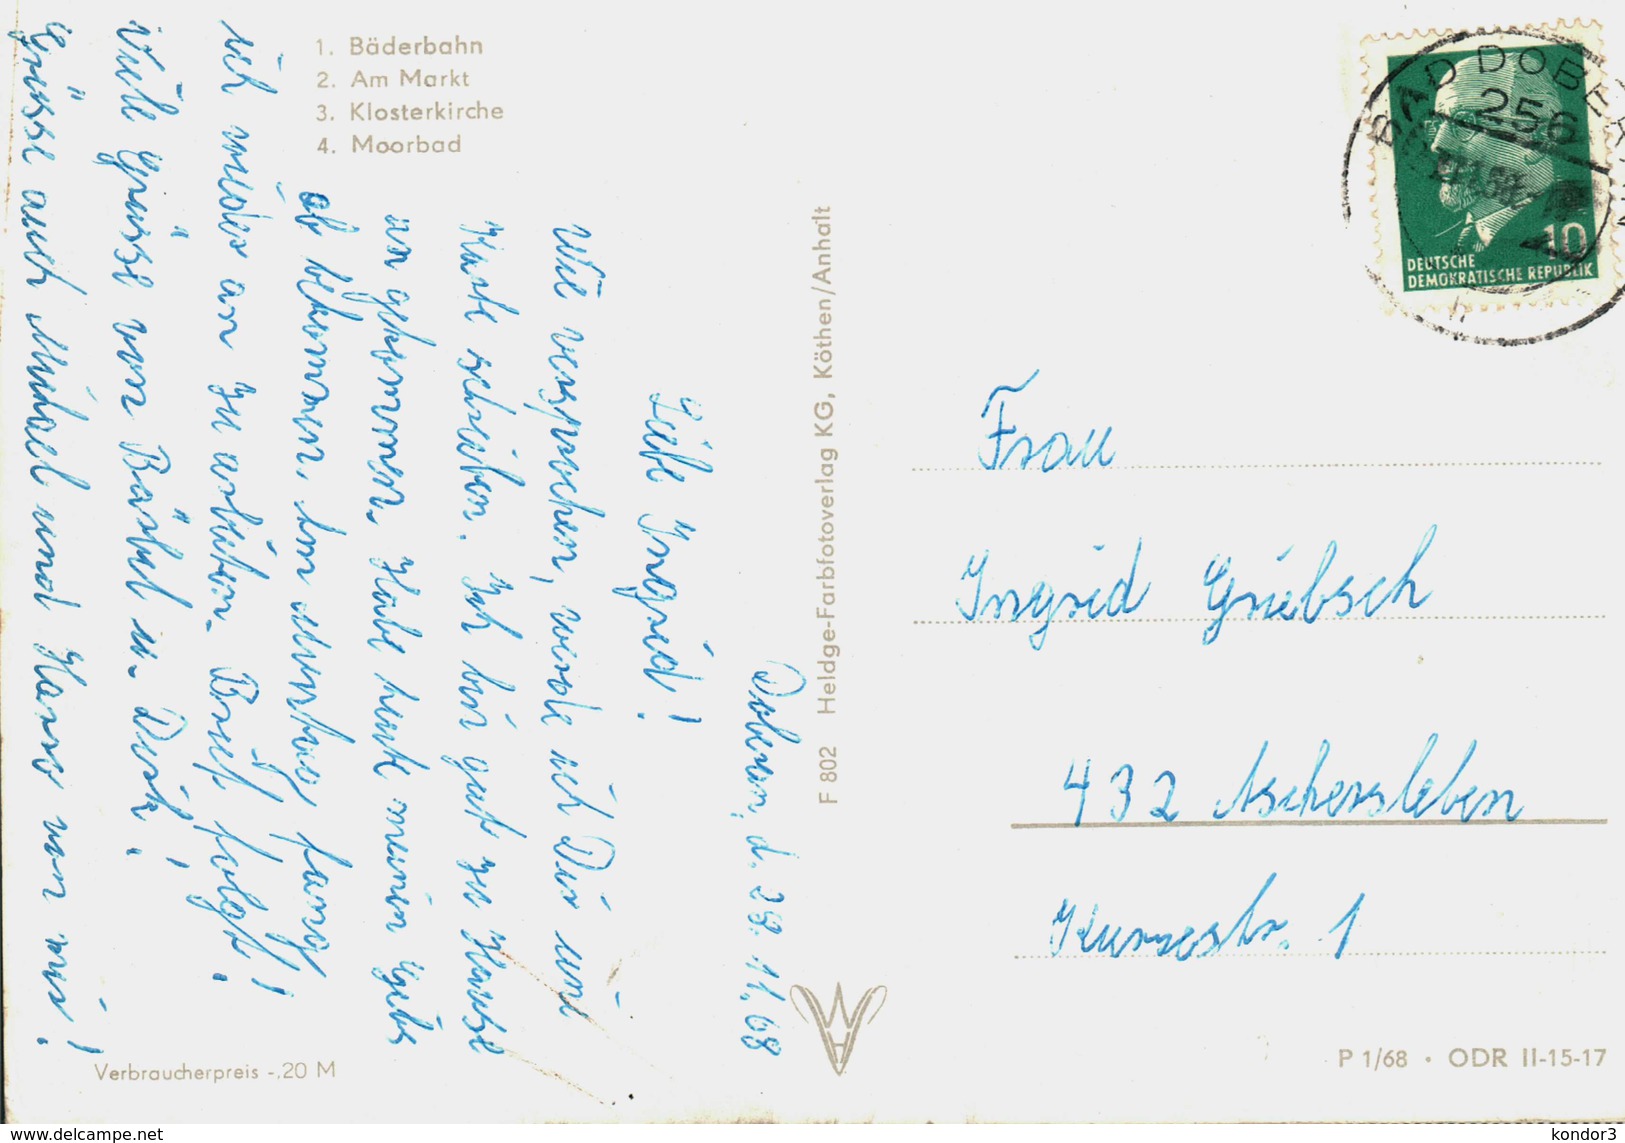 1. Bäderbahn
2. Am Markt
3. Klosterkirche
4. Moorbad
Doberan, d. 29. 11. 68
Liebe Ingrid!
Wie versprochen, werde ich Dir eine
Karte schreiben. Ich bin gut zu Hause
an gekommen. Habe heute meinen Gebs
ab bekommen. Am Montag fang
ich wieder an zu arbeiten. Brief folgt!
Viele Grüsse von Bärbel u. Dirk!
Grüsse auch Michael und Hasso von mir!
Verbraucherpreis -,20 M
F 802 Heldge-Farbfotoverlag KG, Köthen/Anhalt
BAD DOBERAN
256
10
DEUTSCHE
DEMOKRATISCHE REPUBLIK
Frau
Ingrid Griebsch
432 Aschersleben
Kurzestr. 1
P 1/68 • ODR II-15-17
delcampe.net
kondor3